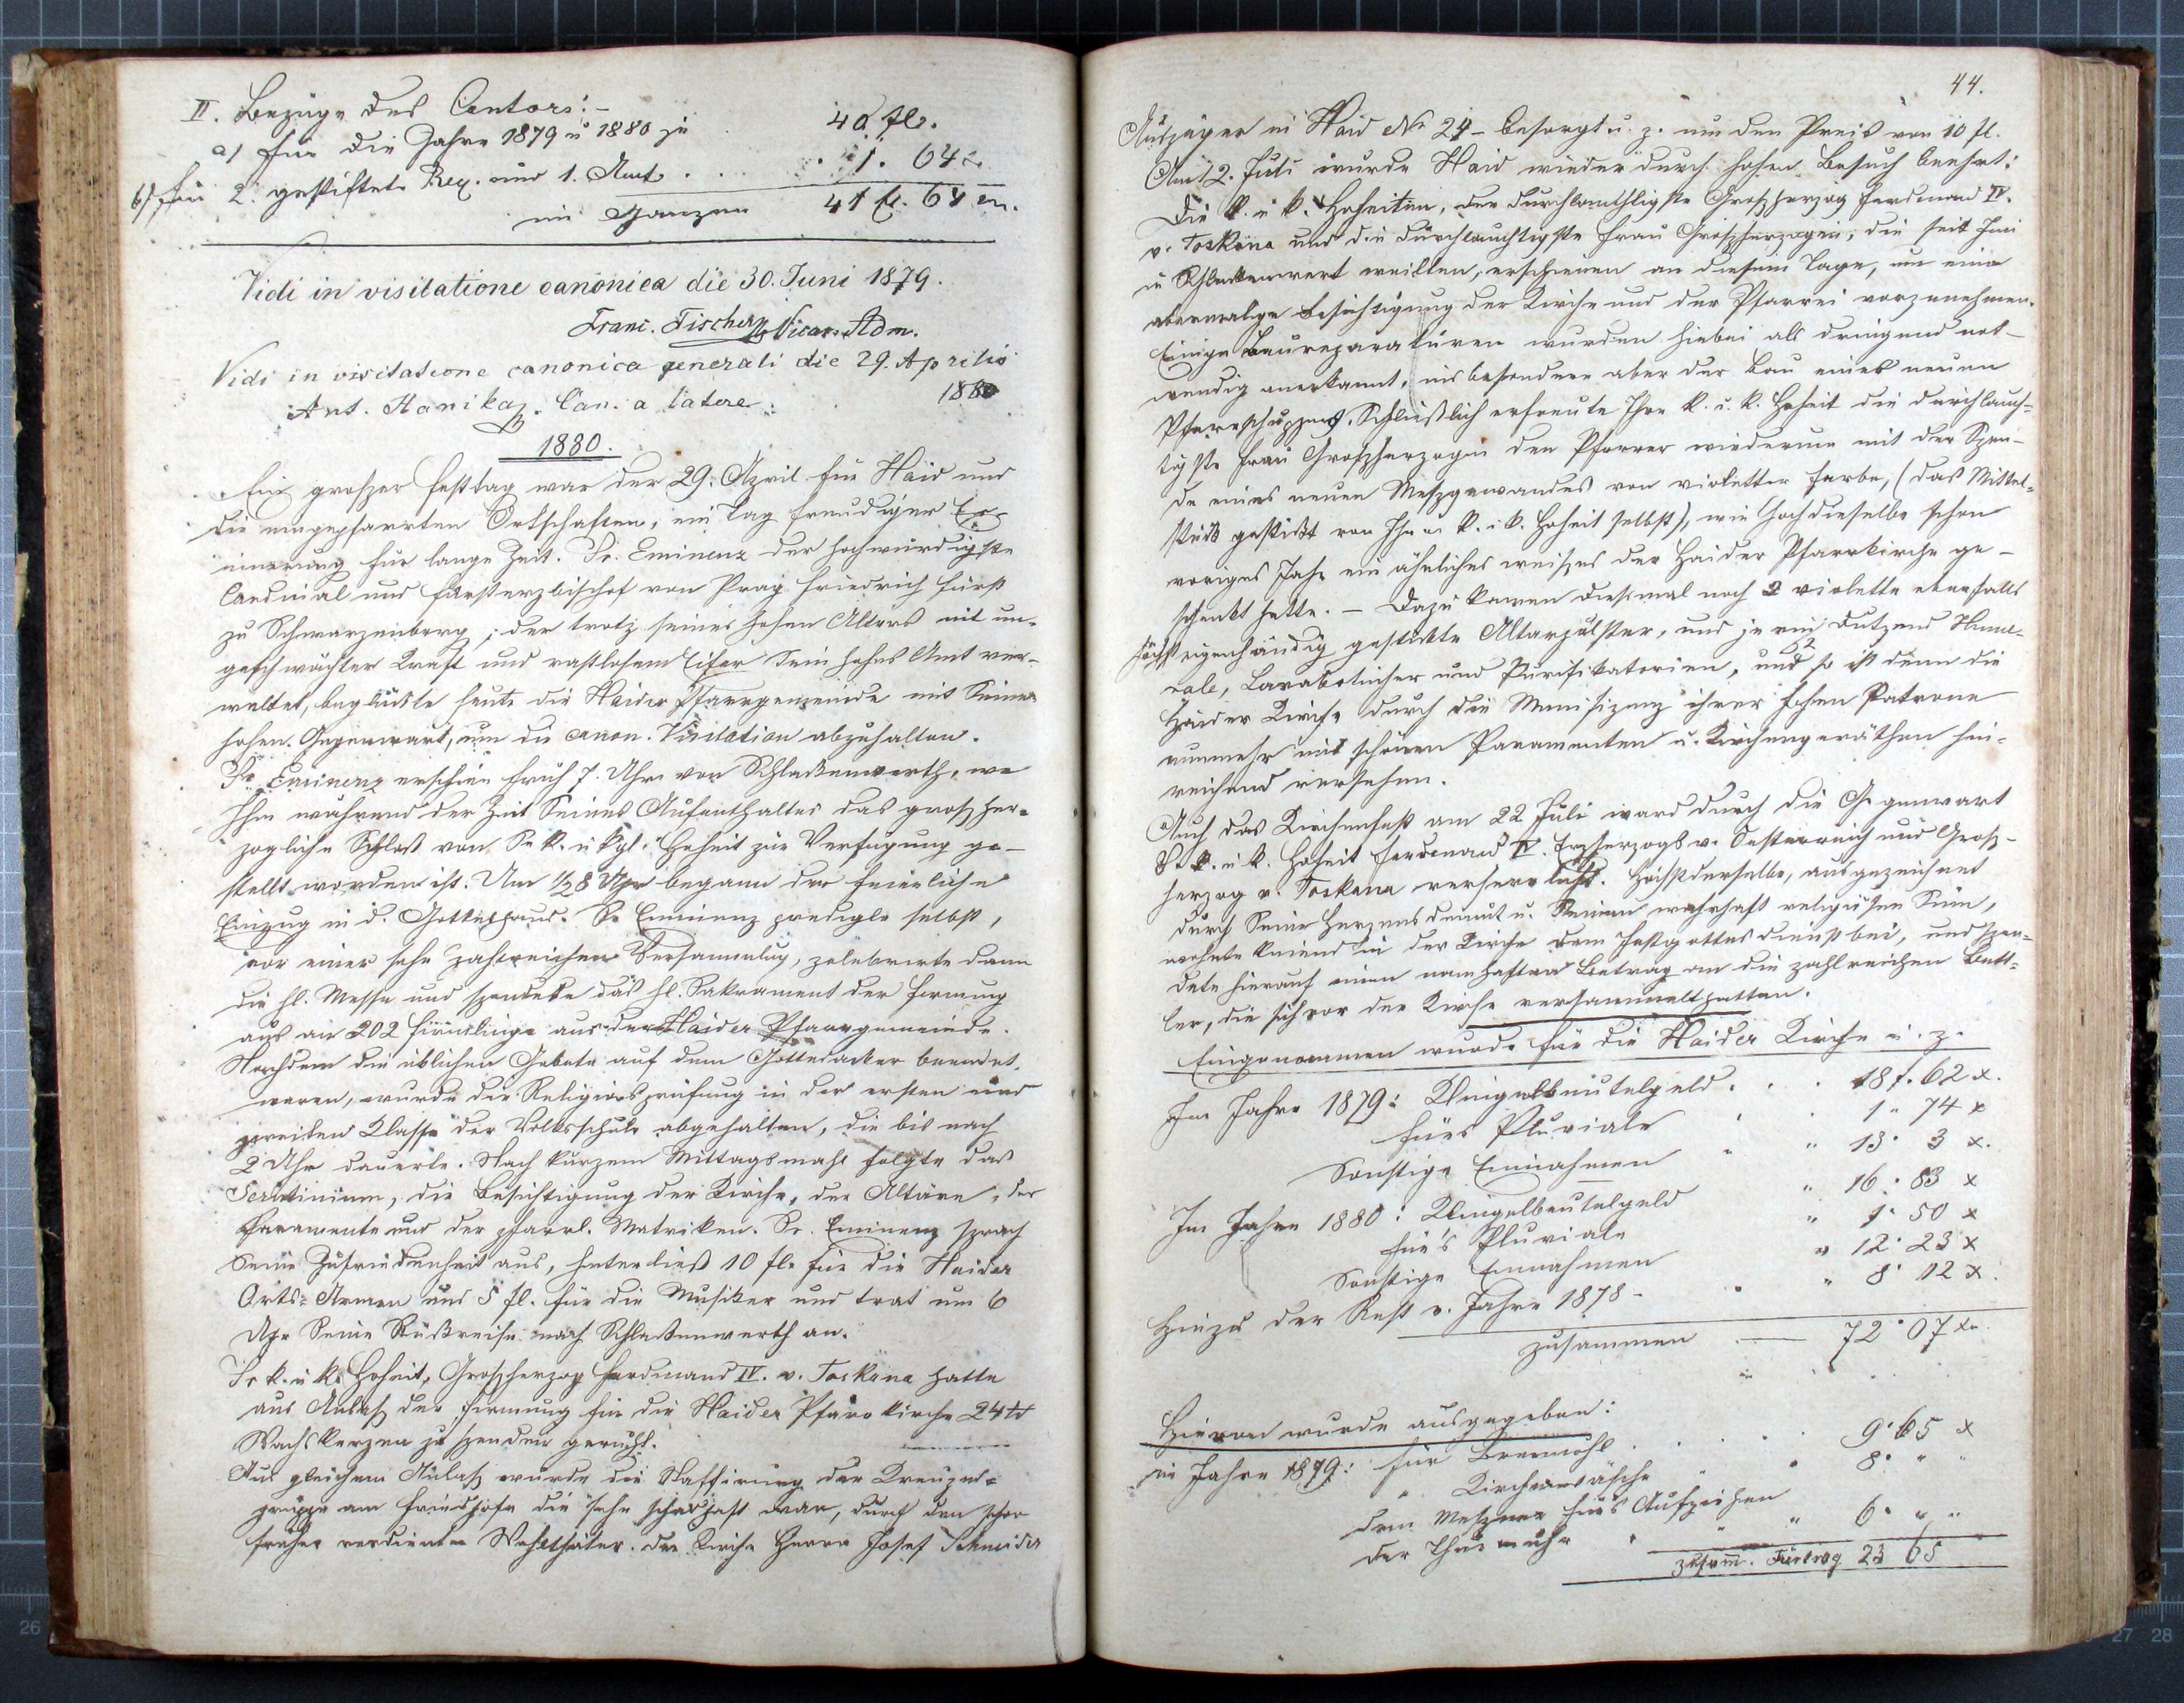 II. Bezüge des Cantors:-
a) für die Jahre 1879 u 1880 je 40 fl.
b) für 2 gestiftete Req. und 1. Amt . . . 1. 64 x.
im Ganzen 41 fl. 64 xr.
Vidi in visitatione canonica die 30. Juni 1879.
Franc. Fischer Vicar. Adm.
Vidi in visitatione canonica generali die 29. Aprilis
1880
Ant. Hanikaz. Can. a latere
1880.
Ein großer Festtag war der 29. April für Haid und
die eingepfarrten Ortschaften, ein Tag freudiger Er-
innerung für lange Zeit. Sr. Eminenz der hochwürdigste
Cardinal und Fürsterzbischof von Prag Friedrich Fürst
zu Schwarzenberg, der trotz seines hohen Alters mit un-
geschwächter Kraft und rastlosem Eifer Sein hohes Amt ver-
waltet, beglückte heute die Haider Pfarrgemeinde mit Seiner
hohen Gegenwart, um die canon. Visitation abzuhalten.
Sr. Eminenz erschien früh 7. Uhr von Schlackenwerth, wo
Ihm während der Zeit Seines Aufenthaltes das großher-
zogliche Schloß von Sr. k. u kgl. Hoheit zur Verfügung ge-
stellt worden ist. Um 1/2 8 Uhr begann der feierliche
Einzug in d. Gotteshaus. Sr Eminenz predigte selbst,
vor einer sehr zahlreichen Versammlung, zelebrirte dann
die hl. Messe und spendete das hl. Sakrament der Firmung
aus an 202 Firmlinge aus der Haider Pfarrgemeinde.
Nachdem die üblichen Gebete auf dem Gottesacker beendet
waren, wurde die Religionsprüfung in der ersten und
zweiten Klasse der Volksschule abgehalten, die bis nach
2 Uhr dauerte. Nach kurzem Mittagsmahl folgte das
Scrutinium, die Besichtigung der Kirche, der Altäre, der
Paramente und der pfarrl. Matriken. Sr. Eminenz sprach
Seine Zufriedenheit aus, hinterließ 10 fl. für die Haider
Orts-Armen und 5 fl. für die Musiker und trat um 6
Uhr Seine Rückreise nach Schlackenwerth an.
Sr k. u k. Hoheit, Großherzog Ferdinand IV. v. Toskana hatte
aus Anlaß der Firmung für die Haider Pfarrkirche 24 ℔
Wachskerzen zu spenden geruht.
Aus gleichem Anlaß wurde die Staffirung der Kreuzes-
gruppe am Friedhofe die sehr schadhaft war, durch den schon
früher verdienten Wohlthäter der Kirche Herrn Josef Schneider
44.
Auszüger in Haid No 24 - besorgt u. z. um den Preis von 10 fl.
Am 2. Juli wurde Haid wieder durch hohen Besuch beehrt:
Die k. u k. Hoheiten, der durchlauchtigste Großherzog Ferdinand IV.
v. Toskana und die durchlauchtigste Frau Großherzogin, die seit Juni
in Schlackenwert weilten, erschienen an diesem Tage, um eine
abermalige Besichtigung der Kirche und der Pfarrei vorzunehmen.
Einige Baureparaturen wurden hiebei als dringend not-
wendig anerkannt, insbesondere aber der Bau eines neuen
Pfarrschuppens. Schließlich erfreute Ihre k. u. k. Hoheit die durchlauch-
tigste Frau Großherzogin den Pfarrer wiederum mit der Spen-
de eines neuen Meßgewandes von violetter Farbe, (das Mittel-
stück gestickt von Ihrer k. u k. Hoheit selbst), wie Hochdieselbe schon
voriges Jahr ein ähnliches weißes der Haider Pfarrkirche ge-
schenkt hatte. - Dazu kamen diesmal noch 2 violette ebenfalls
höchst eigenhändig gestickte Altarpölster, und je ein Dutzend Hume-
rale, Lavabotücher und Purifikatorien, und so ist denn die
Haider Kirche durch die Munifizenz ihrer hohen Patrone
nunmehr mit schönen Paramenten u. Kirchengeräthen hin-
reichend versehen.
Auch das Kirchenfest am 22 Juli ward durch die Gegenwart
Sr. k. u k. Hoheit Ferdinand IV. Erzherzogs v. Oesterreich und Groß-
herzog v. Toskana verherrlicht. Höchstderselbe, ausgezeichnet
durch Seine Herzensdemut u. Seinen wahrhaft religiösen Sinn,
wohnte knieend in der Kirche dem Festgottesdienst bei, und spen-
dete hierauf einen namhaften Betrag an die zahlreichen Bett-
ler, die sich vor der Kirche versammelt hatten.
Eingenommen wurde für die Haider Kirche u. z.
Im Jahre 1879: Klingelbeutelgeld . . . 18 f. 62 x.
fürs Pluviale " . 1 " 74 x
Sonstige Einnahmen " " 13. 3 x.
Im Jahre 1880: Klingelbeutelgeld " 16. 83 x
für's Pluviale " 1. 50 x
Sonstige Einnahmen " 12. 23 x
Hiezu der Rest v. Jahre 1878 - . " 8. 12 x.
zusammen — 72. 07 xr.
Hievon wurde ausgegeben:
im Jahre 1879: für Brennöhl . . . . . 9. 65 x
" Kirchenwäsche " " 8. " "
dem Meßner fürs Aufziehen
der Thurmuhr " " " 6. " "
zusam. Fürtrag 23 65